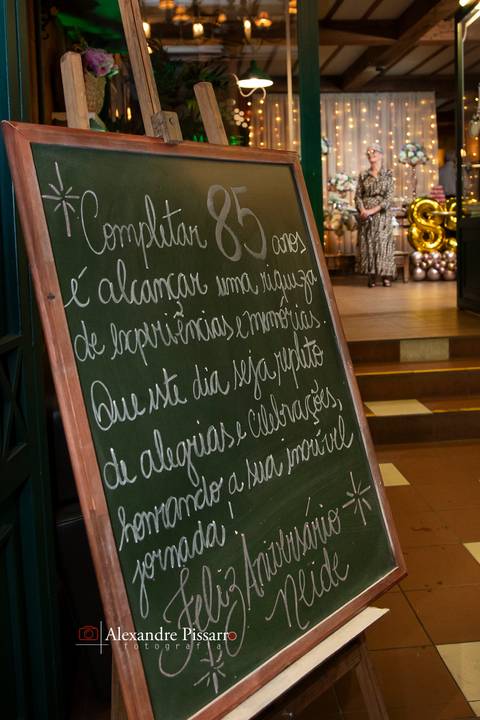 Completar 85 anos
é alcançar uma riqueza
de experiências e memórias.
Que este dia seja repleto
de alegrias e celebrações,
honrando a sua incrível
jornada!
Feliz Aniversário
Neide
8
Alexandre Pissarro
fotografia